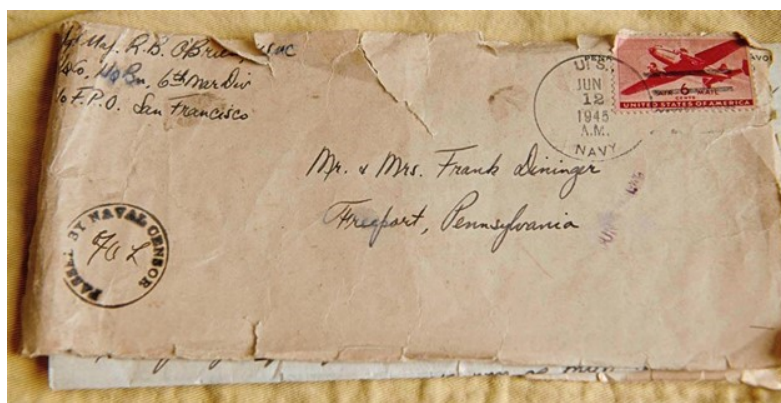 Maj. R.B. O'Brien, USMC
Hq Co, Hq Bn, 6th Mar Div
c/o F.P.O. San Francisco
U.S.
JUN
12
1945
A.M.
NAVY
6
CENTS
AIR MAIL
UNITED STATES OF AMERICA
Mr. & Mrs. Frank Dininger
Freeport, Pennsylvania
PASSED BY NAVAL CENSOR